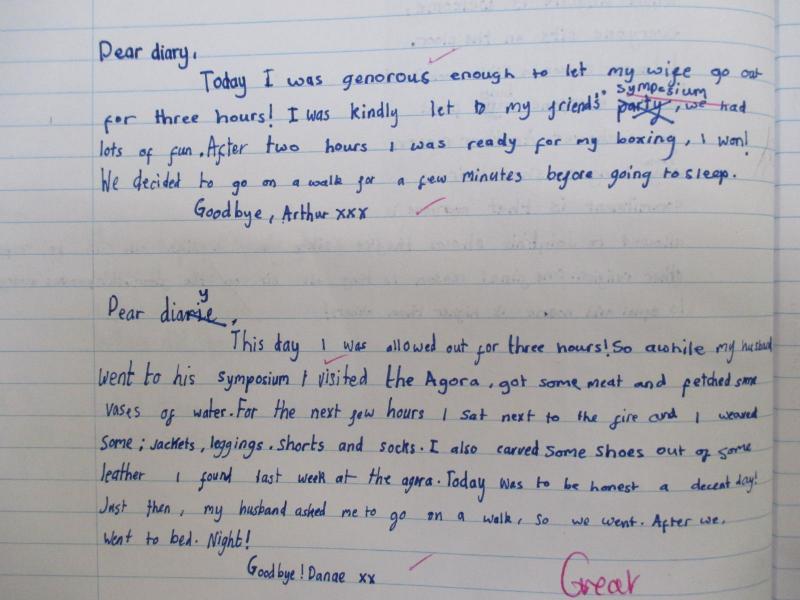 Dear diary,
Today I was genorous enough to let my wife go out
for three hours! I was kindly let to my friends' symposium party, we had
lots of fun. After two hours I was ready for my boxing, I won!
We decided to go on a walk for a few minutes before going to sleep.
Goodbye, Arthur xxx
Dear diarie y,
This day I was allowed out for three hours! So awhile my husband
went to his symposium I visited the Agora, got some meat and fetched some
vases of water. For the next few hours I sat next to the fire and I weaved
some; jackets, leggings, shorts and socks. I also carved some shoes out of some
leather I found last week at the agora. Today was to be honest a decent day!
Just then, my husband asked me to go on a walk, so we went. After we,
went to bed. Night!
Goodbye! Danae xx
Great